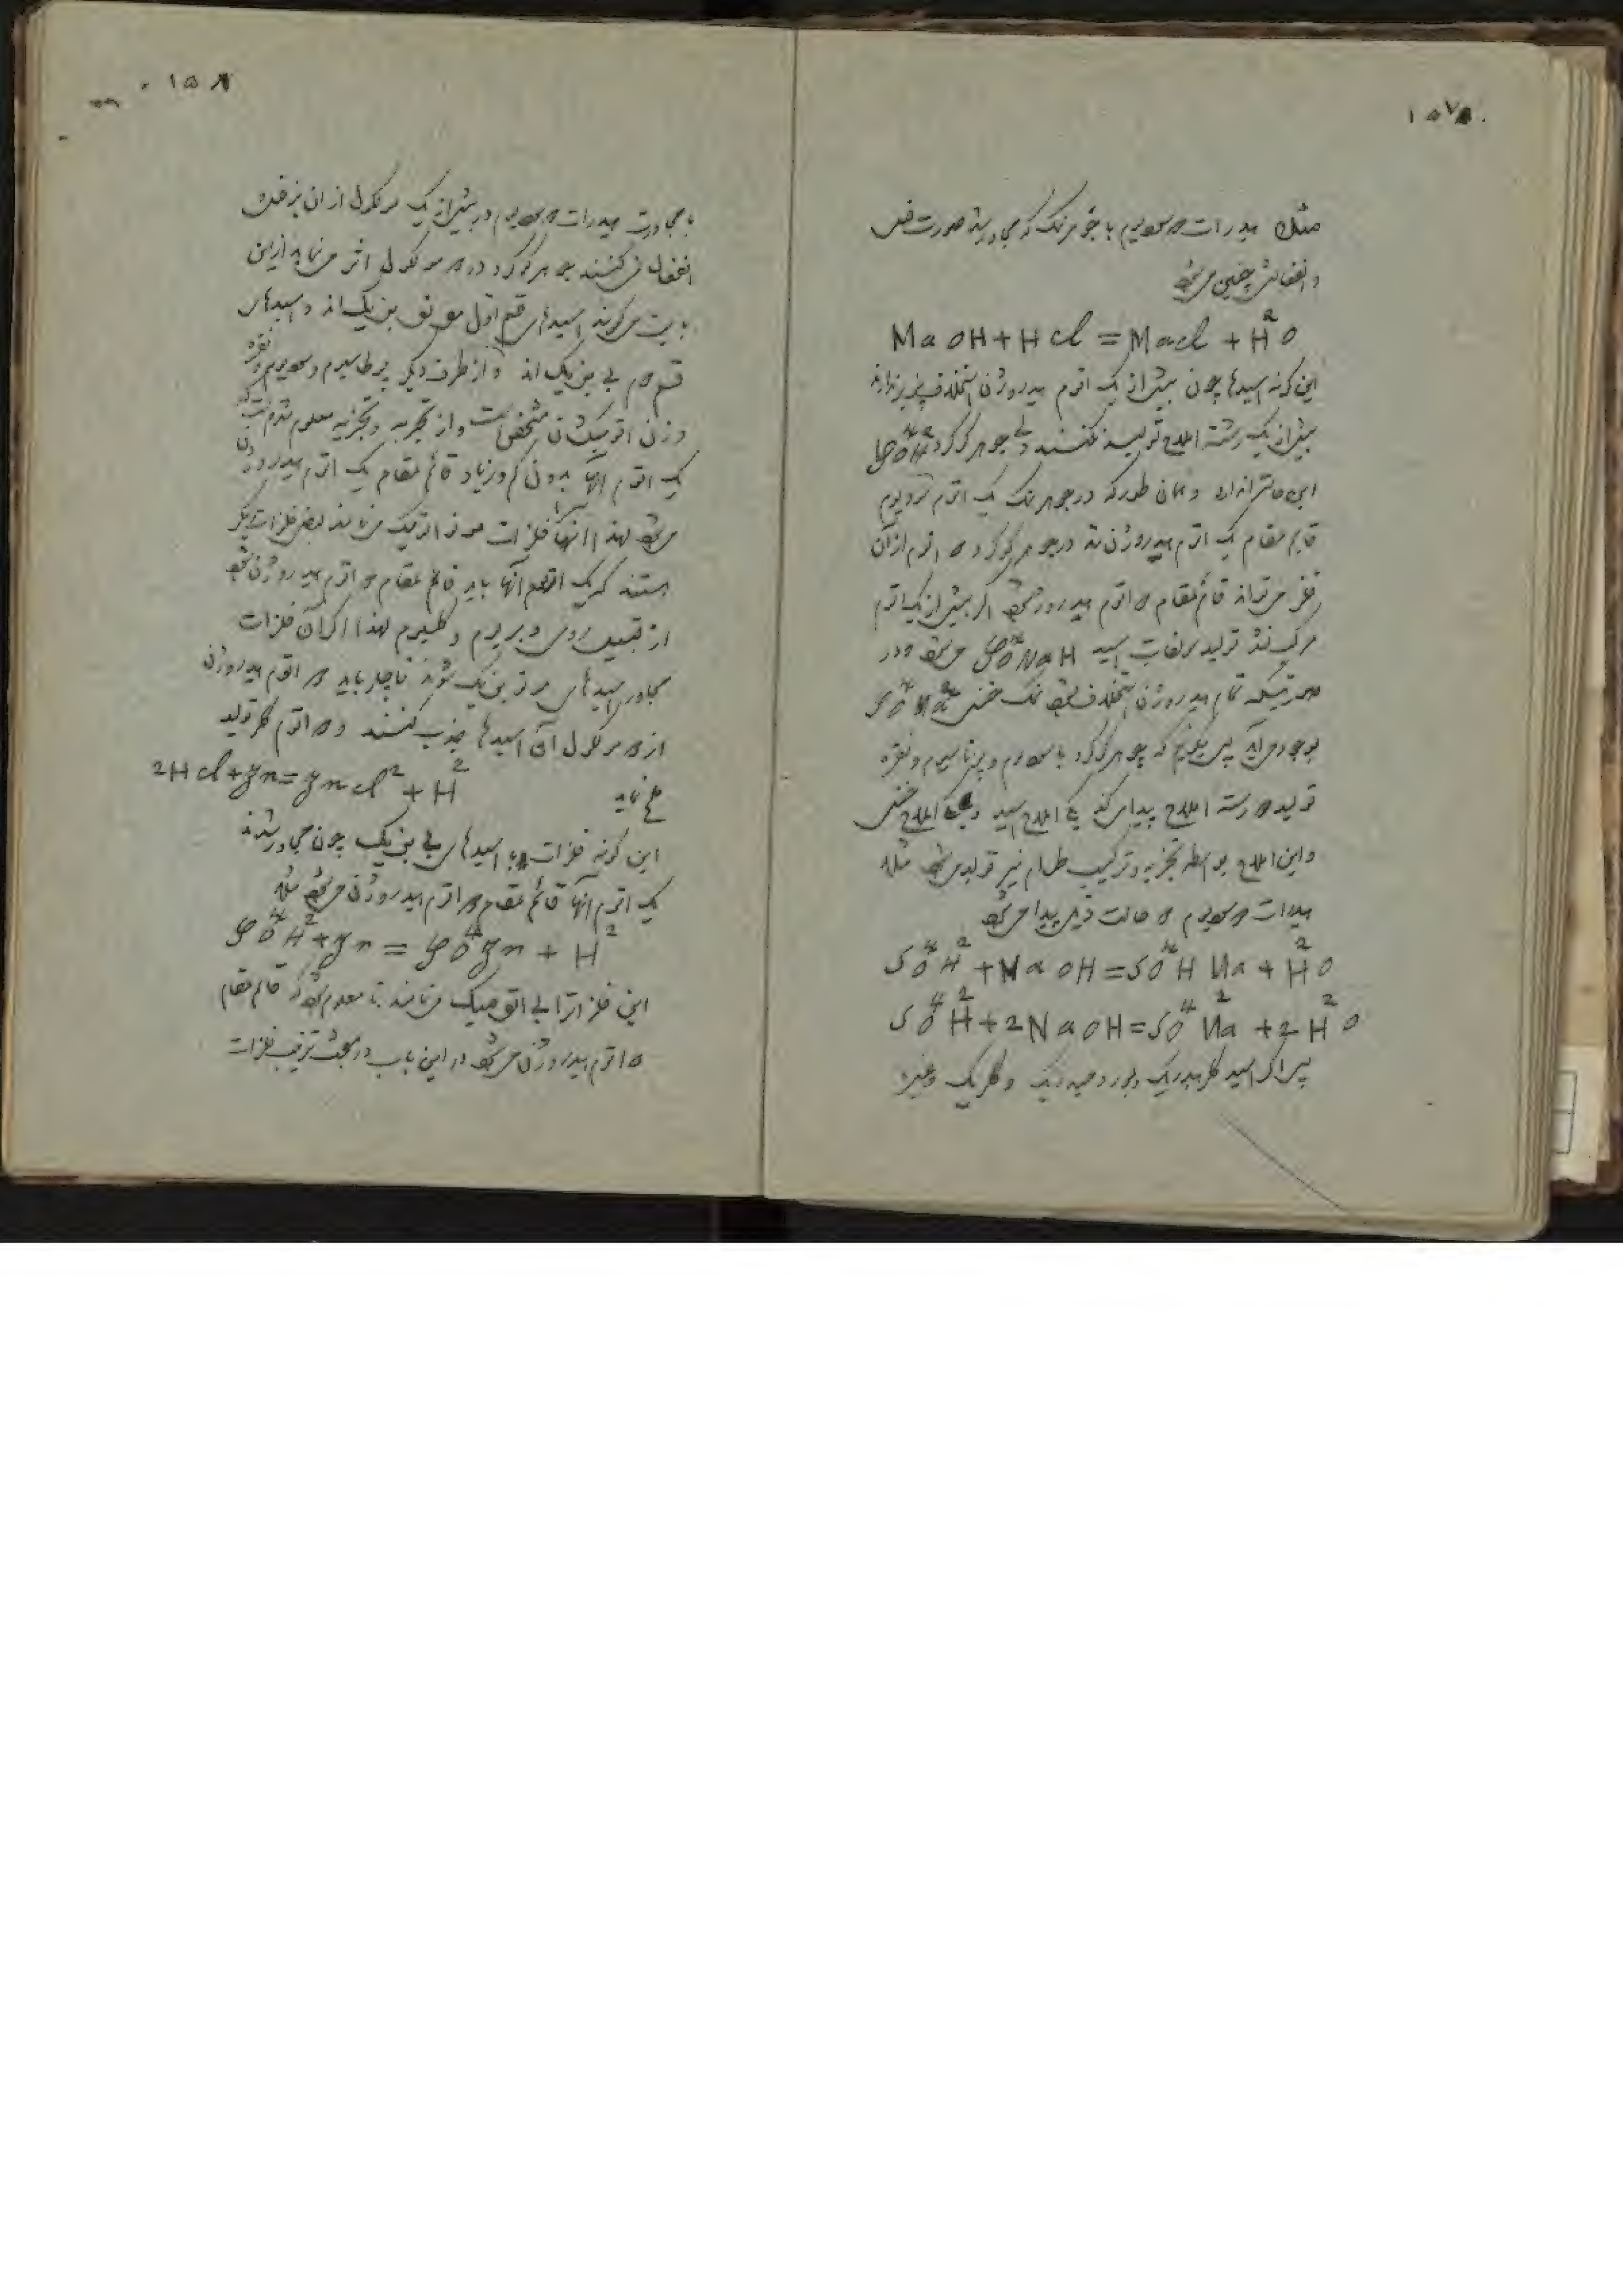 ۱۵۷
مثلا هیدرات دو سودیوم با جوهر نمک که مجاور شد صورت فعل
و انفعالش چنین میشود
Na OH + H Cl = Na Cl + H² O
این گونه اسیدها چون بیش از یک اتوم هیدروژن استخلاف پذیر ندارند
بیش از یک رشته املاح تولید نمیکنند ولی جوهر گوگرد SO⁴H²
این حالت را ندارد و همان طور که در جوهر نمک یک اتوم سودیوم
قایم مقام یک اتوم هیدروژن شد در جوهر گوگرد دو اتوم از آن
فلز میتواند قائم مقام دو اتوم هیدروژن شود اگر بیش از یک اتوم
مرکب نشد تولید سولفات اسید SO⁴NaH میشود و در
صورتیکه تمام هیدروژن استخلاف شود نمک خنثی SO⁴Na²
بوجود می آید پس میگوئیم که جوهر گوگرد با سودیوم و پوتاسیوم و نقره
تولید دو رشته املاح پیدا میکند یکی املاح اسید و یکی املاح خنثی
و این املاح بواسطه تجزیه و ترکیب طعام نیز تولید میشود مثلا
هیدرات دو سودیوم دو حالت ذیل پیدا میشود
SO⁴H² + Na OH = SO⁴H Na + H²O
SO⁴H² + 2NaOH = SO⁴Na² + 2H²O
پس اگر اسید کلرهیدریک و برومیدریک و کلریک و غیره
۱۵۸
با مجاورت هیدرات دو سودیوم در بیش از یک مولکول از آن نیز فعل و
انفعال نمیکنند جوهر گوگرد در دو مولکول اثر مینماید از این
بابت میگویند اسیدهای قسم اول مونو بزیک اند و اسیدهای
قسم دوم بی بزیک اند و از طرف دیگر پوطاسیوم و سودیوم و نقره
وزن اتومیکشان مشخص است و از تجربه و تجزیه معلوم شده است که
یک اتوم آنها بدون کم و زیاد قائم مقام یک اتوم هیدروژن
میشود لهذا آنها را فلزات مونو اتومیک مینامند بعض فلزات دیگر
هستند که یک اتوم آنها باید قائم مقام دو اتوم هیدروژن شود
از قبیل روی و بریوم و کلسیوم لهذا اگر آن فلزات
مجاور اسیدهای مونو بزیک شوند ناچار باید دو اتوم هیدروژن
از دو مولکول آن اسیدها جذب کنند و دو اتوم کلر تولید
ملح نماید 2H Cl + Zn = Zn Cl² + H²
این گونه فلزات با اسیدهای بی بزیک چون مجاور شدند
یک اتوم آنها قائم مقام دو اتوم هیدروژن میشود مثلا
SO⁴H² + Zn = SO⁴Zn + H²
این فلزات را بی اتومیک مینامند تا معلوم شود که قائم مقام
دو اتوم هیدروژن میشود در این باب در مبحث ترتیب فلزات